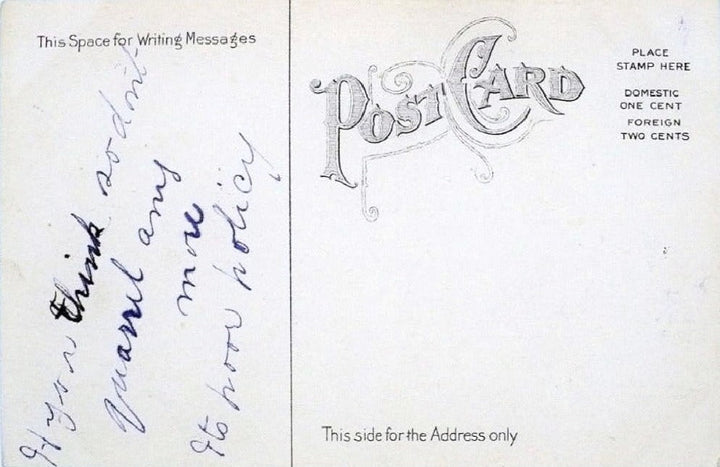 This Space for Writing Messages
If you think so don't
quarrel any
more
Its poor policy
POST CARD
PLACE
STAMP HERE
DOMESTIC
ONE CENT
FOREIGN
TWO CENTS
This side for the Address only